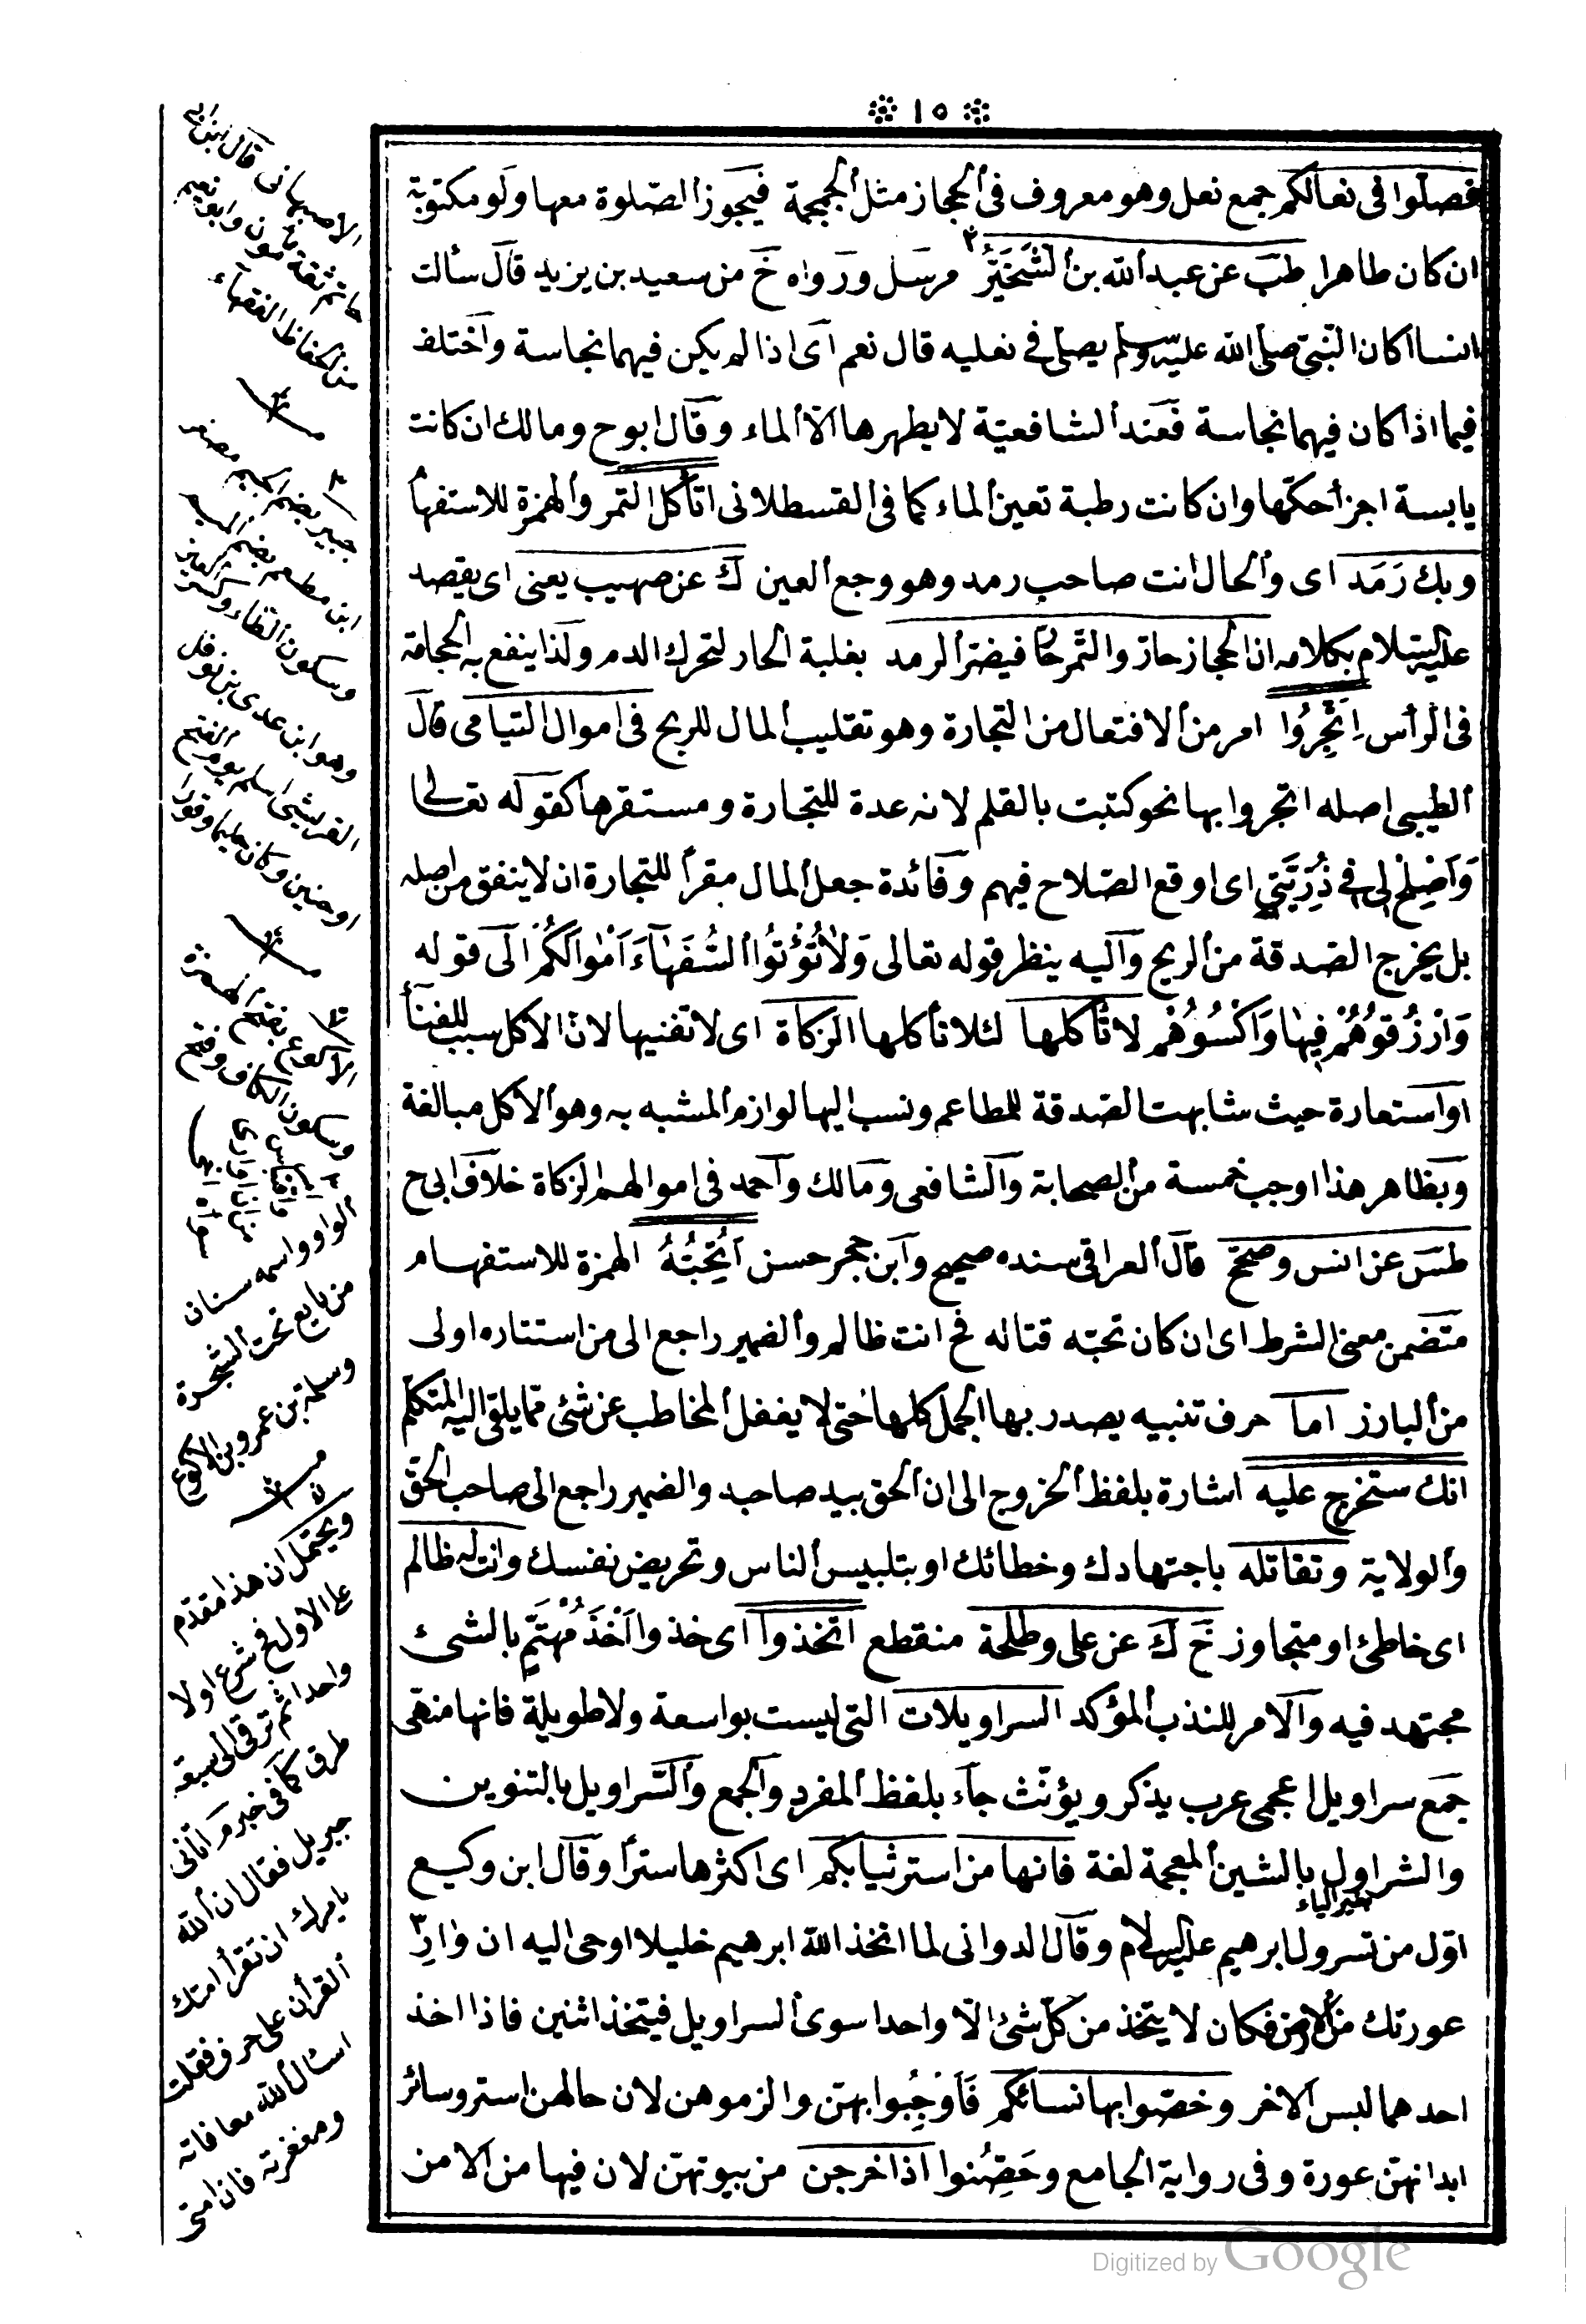 ١٥
فصلوا فى نعالكم جمع نعل وهو معروف فى الحجاز مثل الجمجمة فيجوز الصلوة معها ولو مكتوبة
ان كان طاهرا طب عن عبد الله بن الشخير ٢ مرسل ورواه خ من سعيد بن يزيد قال سألت
انسا اكان النبى صلى الله عليه وسلم يصلى فى نعليه قال نعم اى اذا لم يكن فيهما نجاسة واختلف
فيما اذا كان فيهما نجاسة فعند الشافعية لا يطهرها الا الماء وقال ابوح ومالك ان كانت
يابسة اجزأ حكها وان كانت رطبة تعين الماء كما فى القسطلانى اتأكل التمر والهمزة للاستفهأ
وبك رَمَد اى والحال انت صاحب رمد وهو وجع العين ك عن صهيب يعنى اى يقصد
عليه السلام بكلامه ان الحجاز حارّ والتمر حارّ فيضر الرمد بغلبة الحار لتحرك الدم ولذا ينفع به الحجامة
فى الرأس اِتَّجِرُوا امر من الافتعال من التجارة وهو تقليب المال للربح فى اموال اليتامى قال
الطيبى اصله اتجروا بها نحو كتبت بالقلم لانه عدة للتجارة ومستقرها كقوله تعالى
وَاَصْلِحْ لى فى ذُرِّيَّتى اى اوقع الصلاح فيهم وفائدة جعل المال مقرأ للتجارة ان لا ينفق من اصله
بل يخرج الصدقة من الربح واليه ينظر قوله تعالى وَلاٰ تُؤْتُوا السُّفَهٰاۤءَ اَمْوٰالَكُمْ الى قوله
وَارْزُقُوهُمْ فِيهٰا وَاكْسُوهُمْ لا تأكلها لئلا تأكلها الزكاة اى لا تفنيها لان الاكل سبب للفنأ
او استعارة حيث شابهت الصدقة للمطاعم ونسب اليها لوازم المشبه به وهو الاكل مبالغة
وبظاهر هذا اوجب خمسة من الصحابة والشافعى ومالك واحمد فى اموالهم الزكاة خلاف ابى ح
طس عن انس وصحح قال العراقى سنده صحيح وابن حجر حسن اَتُحِبُّهُ الهمزة للاستفهام
متضمن معنى الشرط اى ان كان تحبه قتاله فح انت ظالم والضمير راجع الى من استتاره اولى
من البارز اما حرف تنبيه يصدر بها الجمل كلها حتى لا يغفل المخاطب عن شئ مما يلقى اليه المتكلم
انك ستخرج عليه اشارة بلفظ الخروج الى ان الحق بيد صاحبه والضمير راجع الى صاحب الحق
والولاية وتقاتله باجتهادك وخطائك او بتلبيس الناس وتحريض نفسك وانت له ظالم
اى خاطئ او متجاوز خ ك عن على وطلحة منقطع اتخذوا اى خذوا اَخْذَ مُهْتَمٍّ بالشئ
مجتهد فيه والامر للندب المؤكد السراويلات التى ليست بواسعة ولا طويلة فانها منهى
جمع سراويل اعجمى عرب يذكر ويؤنث جاء بلفظ المفرد والجمع والسراويل بالتنوين
والشراول بالشين المعجمة لغة فانها من استر ثيابكم اى اكثرها سترا وقال ابن وكيع
بغير الياء
اول من تسرول ابرهيم عليه السلام وقال الدوانى لما اتخذ الله ابرهيم خليلا اوحى اليه ان وٰارِ ٣
عورتك من الارض فكان لا يتخذ من كل شئ الا واحدا سوى السراويل فيتخذ اثنين فاذا اخذ
احدهما لبس الاخر وخصوا بها نسائكم فَاَوْجِبُوا بهن والزموهن لان حالهن استر وسائر
ابدانهن عورة وفى رواية الجامع وحَصِّنُوا اذا خرجن من بيوتهن لان فيها من الامن
الاصبهانى قال ابن ابى
حاتم ثقة مأمون وابو نعيم
من الحفاظ الفقهاء
جبير بضم الجيم مصغر
ابن مطعم بضم الميم
وسكون الطاء وكسر العين
وهو ابن عدى بن نوفل
القرشى اسلم يوم الفتح
او حنين وكان حليما وقورا
الاكوع بفتح الهمزة
وسكون الكاف وفتح
الواو واسمه سنان
من بايع تحت الشجرة
وسلمة بن عمرو بن الاكوع
ويحتمل ان هذا مقدم
على الاول فح شرع اولا
واحدا ثم ترقى الى سبعة
طرق كما فى خبر م اتانى
جبريل فقال ان الله
يامرك ان تقرأ امتك
القرأن على حرف فقلت
اسئل الله معافاته
ومغفرته فان امتى
Digitized by Google